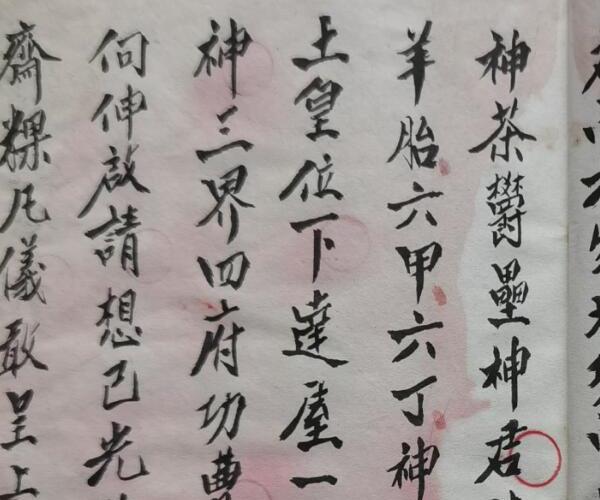 神茶鬱壘神君
羊胎六甲六丁神
土皇位下達屋一
神三界四府功曹
何伸啟請想已光
齋粿凡儀敢呈上